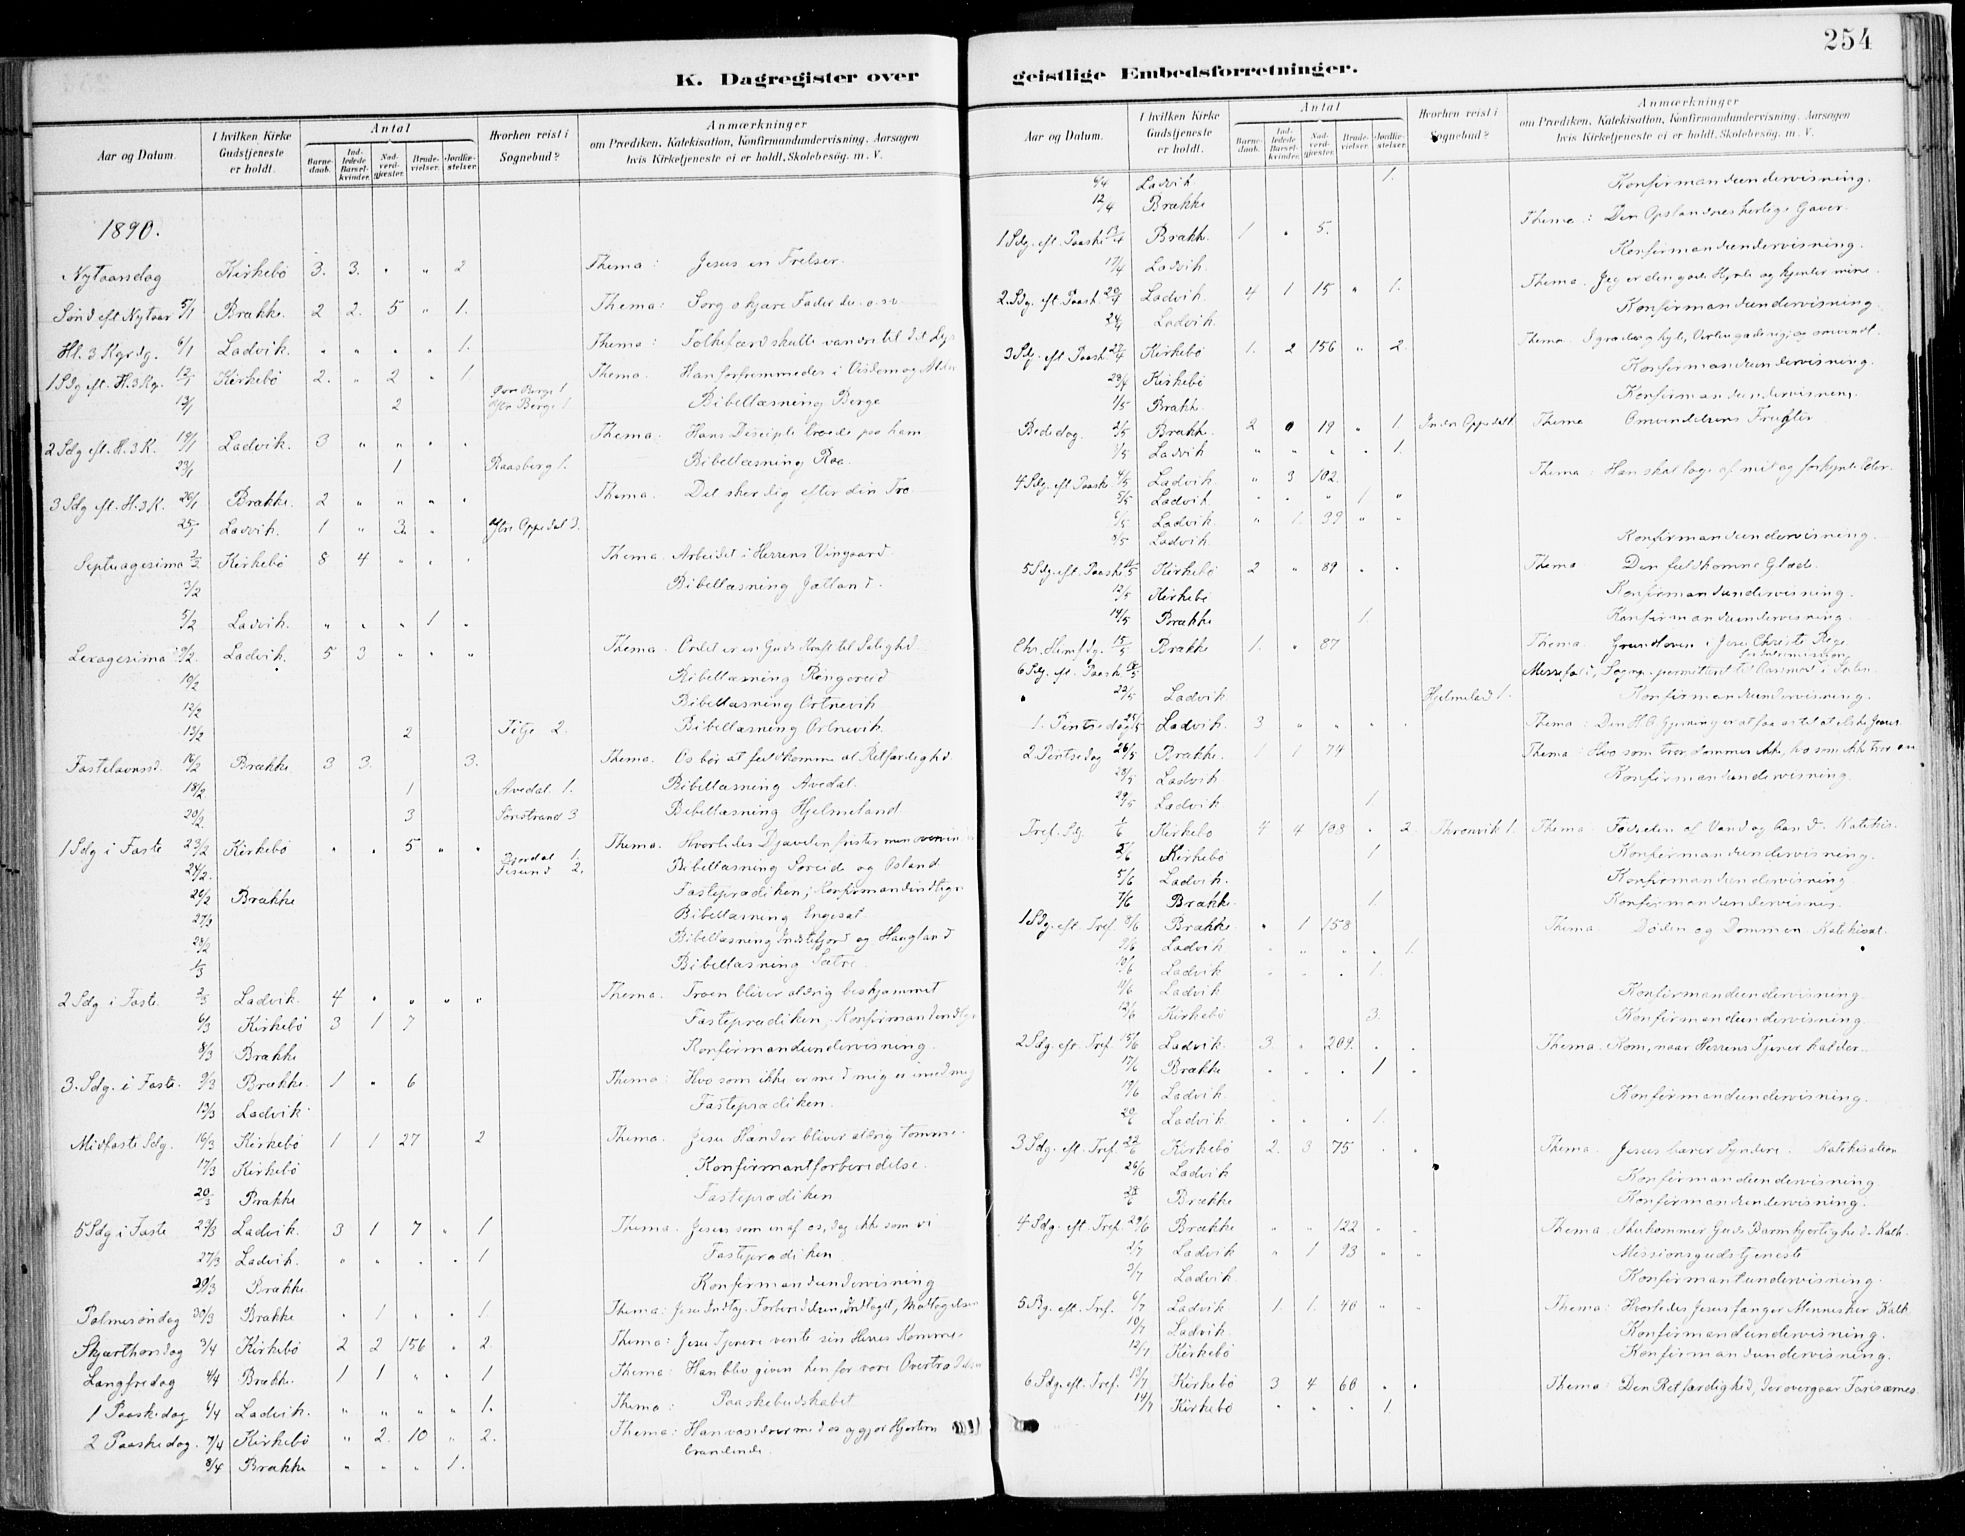 254
K. Dagregister over
geistlige Embedsforretninger.
Aar og Datum.
I hvilken Kirke Gudstjeneste er holdt.
Antal
Barnedaab.
Indledede Barselkvinder.
Nadverdgjæster.
Brudevielser.
Jordfæstelser.
Hvorhen reist i Sognebud?
Anmærkninger
om Prædiken, Katekisation, Konfirmandundervisning, Aarsagen
hvis Kirketjeneste ei er holdt, Skolebesøg. m. V.
1890.
Nytaarsdag Kirkebö 3. 3. " " 2 Thema: Jesus en Frelser.
Sönd eft Nytaar 5/1 Brække. 2 2. 5 " 1. Thema: Sörg o kjære Fader du o.s.v
Hl. 3 Kgr dg. 6/1 Ladvik. " " " " 1. Thema: Folkefærd skulle vandre til dit Lys
1 Sdg eft. H.3.Kg. 12/1 Kirkebö 2. " 2 " 1 Thema. Han forfremmedes i Visdom og Alder
13/1 2 Berge 1. Bibellæsning Berge
2 Sdg eft. H.3.K. 19/1 Ladvik. 3 " " " " Thema. Hans Disciple troede paa ham
23/1 1 Raasberg 1. Bibellæsning Raa.
3 Sdg eft. H.3.K. 26/1 Brække. 2 " " " " Thema. Det sker dig efter din Tro
25/1 Ladvik. 1 " 3. " Oppedal 3.
Septuagesima 2/2 Kirkebö 8 4 " " " Thema. Arbeidet i Herrens Vingaard.
3/2 Bibellæsning Jætland.
5/2 Ladvik. " " " 1 "
Sexagesima 9/2 Ladvik. 5 3 " " " Thema. Ordet er en Guds Kraft til Salighed.
10/2 Bibellæsning Ringereid
12/2 Bibellæsning Ortnevik
13/2 2 2. Bibellæsning Ortnevik.
Fastelavnssd. 16/2 Brække 3 3. 3. Thema. Os bör at fuldkomme al Retfærdighed.
18/2 1 Avedal 1. Bibellæsning Avedal.
20/2. 3 Sörstrand 3 Bibellæsning Hjelmeland
1 Sdg i Faste 23/2 Kirkebö " " 5 " " Thema. Hvorledes Djævelen frister
24/2. 1. 2. Bibellæsning Söreide og Osland
26/2 Brække Fasteprædiken;
27/2 Bibellæsning Engesæt.
28/2 Bibellæsning Indrefjord og Haugland
1/3 Bibellæsning Sætre.
2 Sdg i Faste 2/3 Ladvik. 4 " " " " Thema. Troen bliver aldrig beskjæmmet
6/3 Kirkebö 3 1 7 Fasteprædiken,
8/3 Brække Konfirmandundervisning.
3. Sdg. i Faste. 9/3 Brække. 1 " 6 Thema: Hvo som ikke er med mig er imod mig
13/3 Ladvik. Fasteprædiken.
Midfaste Sdg. 16/3 Kirkebö 1 1 27 2 Thema. Jesu Hænder bliver aldrig tomme.
17/3 Kirkebö Konfirmantforberedelse.
20/3 Brække Fasteprædiken
5 Sdg i Faste 23/3 Ladvik. 3 1 7 " 1 Thema. Jesus som en af os, dog ikke som vi
27/3 Ladvik. " " " " 1 Fasteprædiken
29/3 Brække. Konfirmandundervisning
Palmesöndag 30/3 Brække . 1 . . 1. Thema: Jesu Indtog. Forberedelsen, Indtoget, Modtagelsen
Skjærthorsdag 3/4 Kirkebö 2 2 156 . 2. Thema: Jesu Tjenere vente sin Herres Komme.
Langfredag 4/4 Brække. 1 1 " . 1 Thema: Han blev given hen for vore Overtrædelser
1 Paaskedag 6/4 Ladvik. " " " " 1. Thema: Paaskebudskabet
2 Paaskedag. 7/4 Kirkebö " 2. 10 " 2. Thema: Han vandrer med os og gjör Hjertern
brændende.
8/4 Brække " " " 1.
Aar og Datum.
I hvilken Kirke Gudstjeneste er holdt.
Antal
Barnedaab.
Indledede Barselkvinder.
Nadverdgjæster.
Brudevielser.
Jordfæstelser.
Hvorhen reist i Sognebud?
Anmærkninger
om Prædiken, Katekisation, Konfirmandundervisning, Aarsagen
hvis Kirketjeneste ei er holdt. Skolebesøg. m. V.
Ladvik 1. Konfirmandundervisning.
12/4 Brække
1 Sdg. eft. Paaske 13/4 Brækk. 1 " 5. Thema: Den Opstandnes herlige Gaver.
17/4 Ladvik. Konfirmandundervisning.
2. Sdg. eft. Paask. 20/4 Ladvik. 4 1 15 " 1. Thema. Jeg er den gode Hyrde og kjender mine.
24/4 Ladvik. Konfirmandundervisning.
3 Sdg. eft Paask. 27/4 Kirkebö 1. 2 156 " 2. Thema.
29/4 Kirkebö Konfirmandundervisning.
1/5 Brække. Konfirmandundervisning.
Bededag. 2/5 Brække. 2 " 19 " 1. Indre Oppedal 1 Thema Omvendelsens Frugter
Ladvik " " " " 1.
4 Sdg. eft. Paaske 4/5 Ladvik. " 3 102. Thema: Han skal tage af mit og forkynde Eder.
5/5 Ladvik " " " 1 "
6/5 Ladvik. " 1. 39 " "
8/5 Ladvik. Konfirmandundervisning.
5 Sdg. eft. Paaske 11/5 Kirkebö 2 " 89 . . Thema. Den fuldkomne Glæde.
12/5 Kirkebö Konfirmandundervisning.
14/5 Brække 1 Konfirmandundervisning.
Chr. Himf. dg. 15/5 Brække 1. " 87 Thema. Grundloven i Jesu Christi Rige
6 Sdg. eft. Paask. 18/5 Messefald,
22/5 Ladvik Hjelmeland 1. Konfirmandundervisning.
1. Pintsedag 25/5 Ladvik. 3 " " " " Thema:
2. Pintsedag 26/5 Brække. 1 1 74 Thema: Hvo som tror, dømmes ikke, hvo som ikke tror
28/5 Ladvik Konfirmandundervisning.
29/5 Ladvik. 1
Tref. Sdg. 1/6 Kirkebö 4 4 108 . 2. Thronvik 1. Thema: Födselen af Vand og Aand. Katekis.
2/6 Kirkebö 1 Konfirmandundervisning.
5/6 Ladvik. Konfirmandundervisning
7/6 Brække. 1. Konfirmandundervisnis.
1 Sdg. eft. Tref. 8/6 Brække. " 1 158 Thema Döden og Dommen. Katekisat.
9/6 Ladvik " " " " 1.
10/6 Ladvik " " " 1.
11/6 Ladvik Konfirmandundervisning
12/6 Kirkebö 3. Konfirmandundervisning.
2 Sdg. eft. Tref. 15/6 Ladvik. 3. " 209. . . Thema. Kom, naar Herrens Tjener kalder.
17/6 Brække . . . 1 .
19/6 Ladvik. Konfirmandundervisning.
20/6 Ladvik. . . . 1.
3 Sdg. eft. Tref. 22/6 Kirkebö 2. 3 75 . . Thema. Jesus bærer Syndere. Katekisation
26/6 Ladvik. Konfirmandundervisning
28/6 Brække Konfirmandundervisning.
4 Sdg. eft. Tref. 29/6 Brække " " 122 " " Thema. Barmhjertighed. Kath.
2/7 Ladvik " 1 93 " " Missionsgudstjeneste
3/7 Ladvik. Konfirmantundervisning.
5 Sdg. eft. Tref. 6/7 Ladvik 1. 1. 40 " " Thema: Hvorledes Jesus fanger Mennesker. Kath
10/7 Ladvik. Konfirmandundervisning.
12/7 Kirkebö Konfirmandundervisning.
6 Sdg. eft. Tref. 13/7 Kirkebö 3 4 60 . . Thema: Den Retfærdighed, der overgaar Farisæernes.
14/7 Kirkebö . . . 1